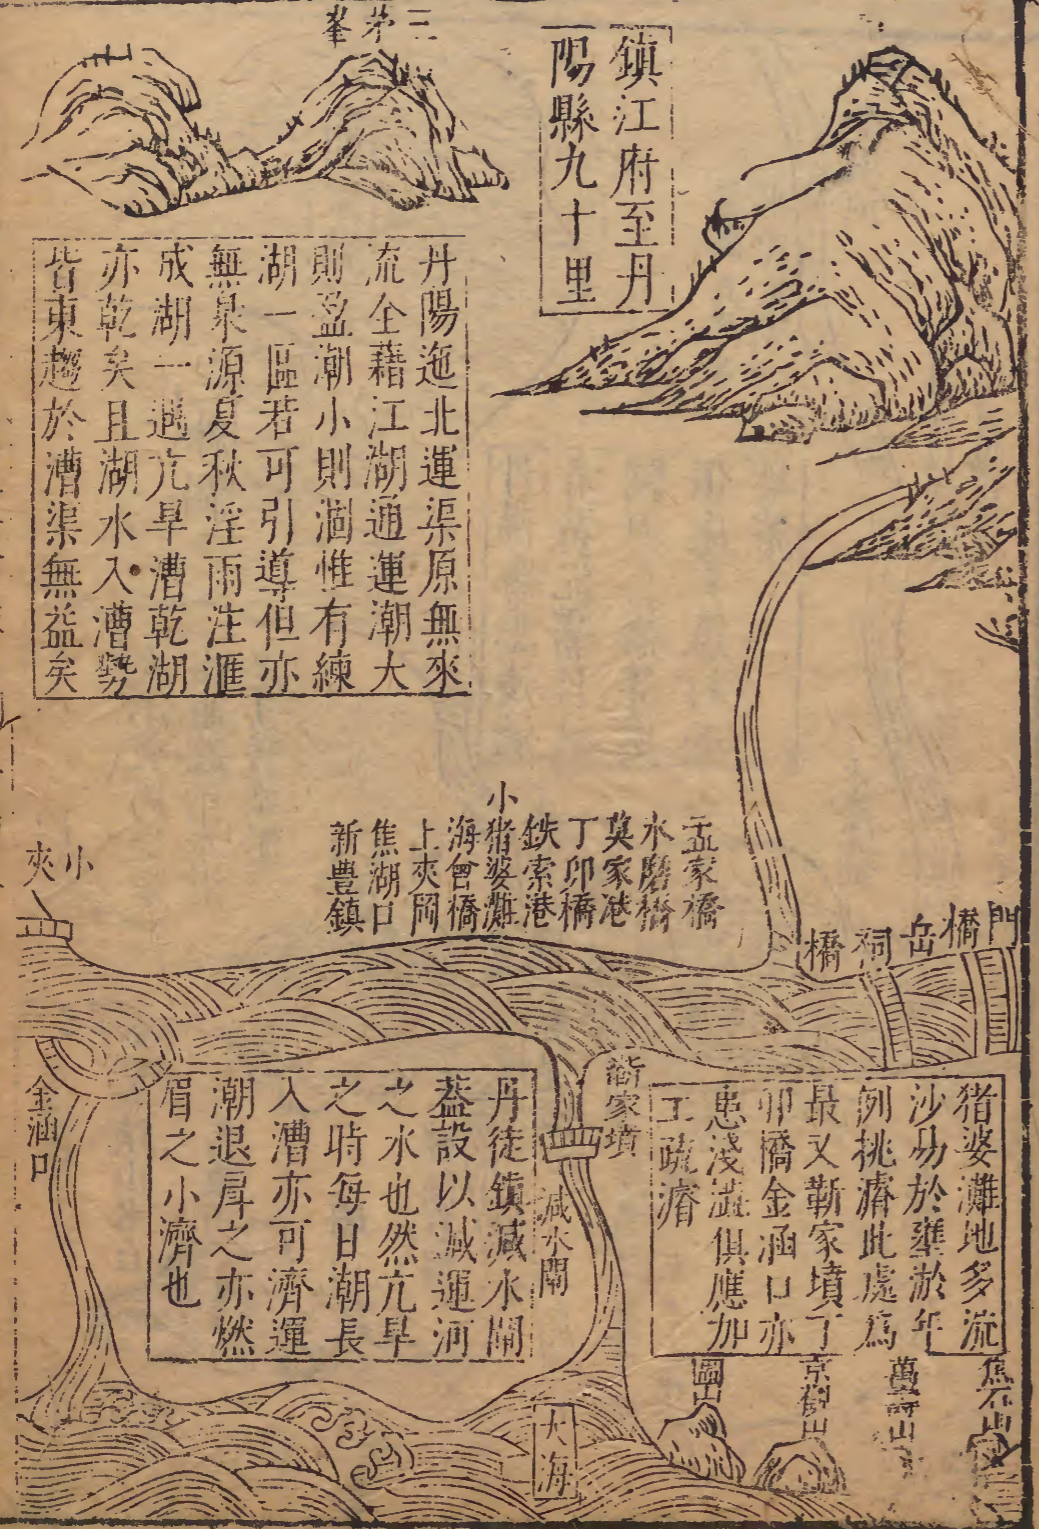 三茅峯
鎮江府至丹
陽縣九十里
丹陽迤北運渠原無來
流全藉江湖通運潮大
則盈潮小則涸惟有練
湖一區若可引導但亦
無泉源夏秋淫雨注滙
成湖一遇亢旱漕乾湖
亦乾矣且湖水入漕勢
皆東趨於漕渠無益矣
門橋
岳祠橋
孟家橋
水磨橋
莫家港
丁卯橋
鉄索港
小猪婆灘
海會橋
上夾岡
焦湖口
新豊鎮
小夾
猪婆灘地多流
沙易於壅淤年
例挑濬此處爲
最又靳家墳丁
卯橋金涵口亦
患淺澁俱應加
工疏濬
家墳
減水閘
丹徒鎮減水閘
葢設以減運河
之水也然亢旱
之時每日潮長
入漕亦可濟運
潮退戽之亦燃
眉之小濟也
金涵口
焦石山
萬壽山
京峴山
圌山
大海